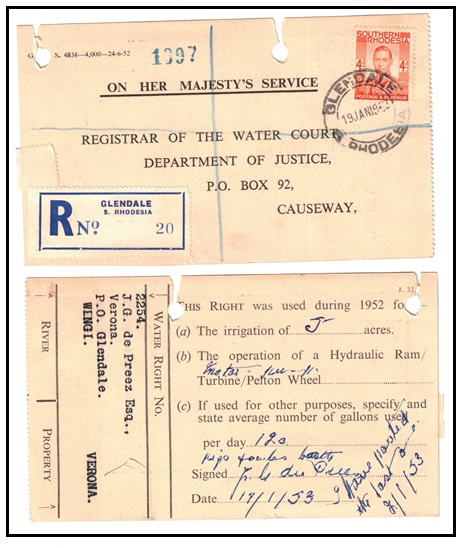 G. S. 4838—4,000—24-6-52
1397
ON HER MAJESTY'S SERVICE
SOUTHERN
RHODESIA
4d 4d
POSTAGE & REVENUE
GLENDALE
19 JAN 19
S. RHODESIA
REGISTRAR OF THE WATER COURT,
DEPARTMENT OF JUSTICE,
P.O. BOX 92,
CAUSEWAY,
R No
GLENDALE
S. RHODESIA
20
J. 32
RIVER
PROPERTY
2254.
J.G. de Preez Esq.,
Verona.
P.O. Glendale.
WENGI.
VERONA.
WATER RIGHT NO.
THIS RIGHT was used during 1952 for
(a) The irrigation of 5 acres.
(b) The operation of a Hydraulic Ram/
Turbine/Pelton Wheel
(c) If used for other purposes, specify and
state average number of gallons used
per day 120
pigs fowles
Signed
Date 19/1/53
I have posted
the last one
2/1/53